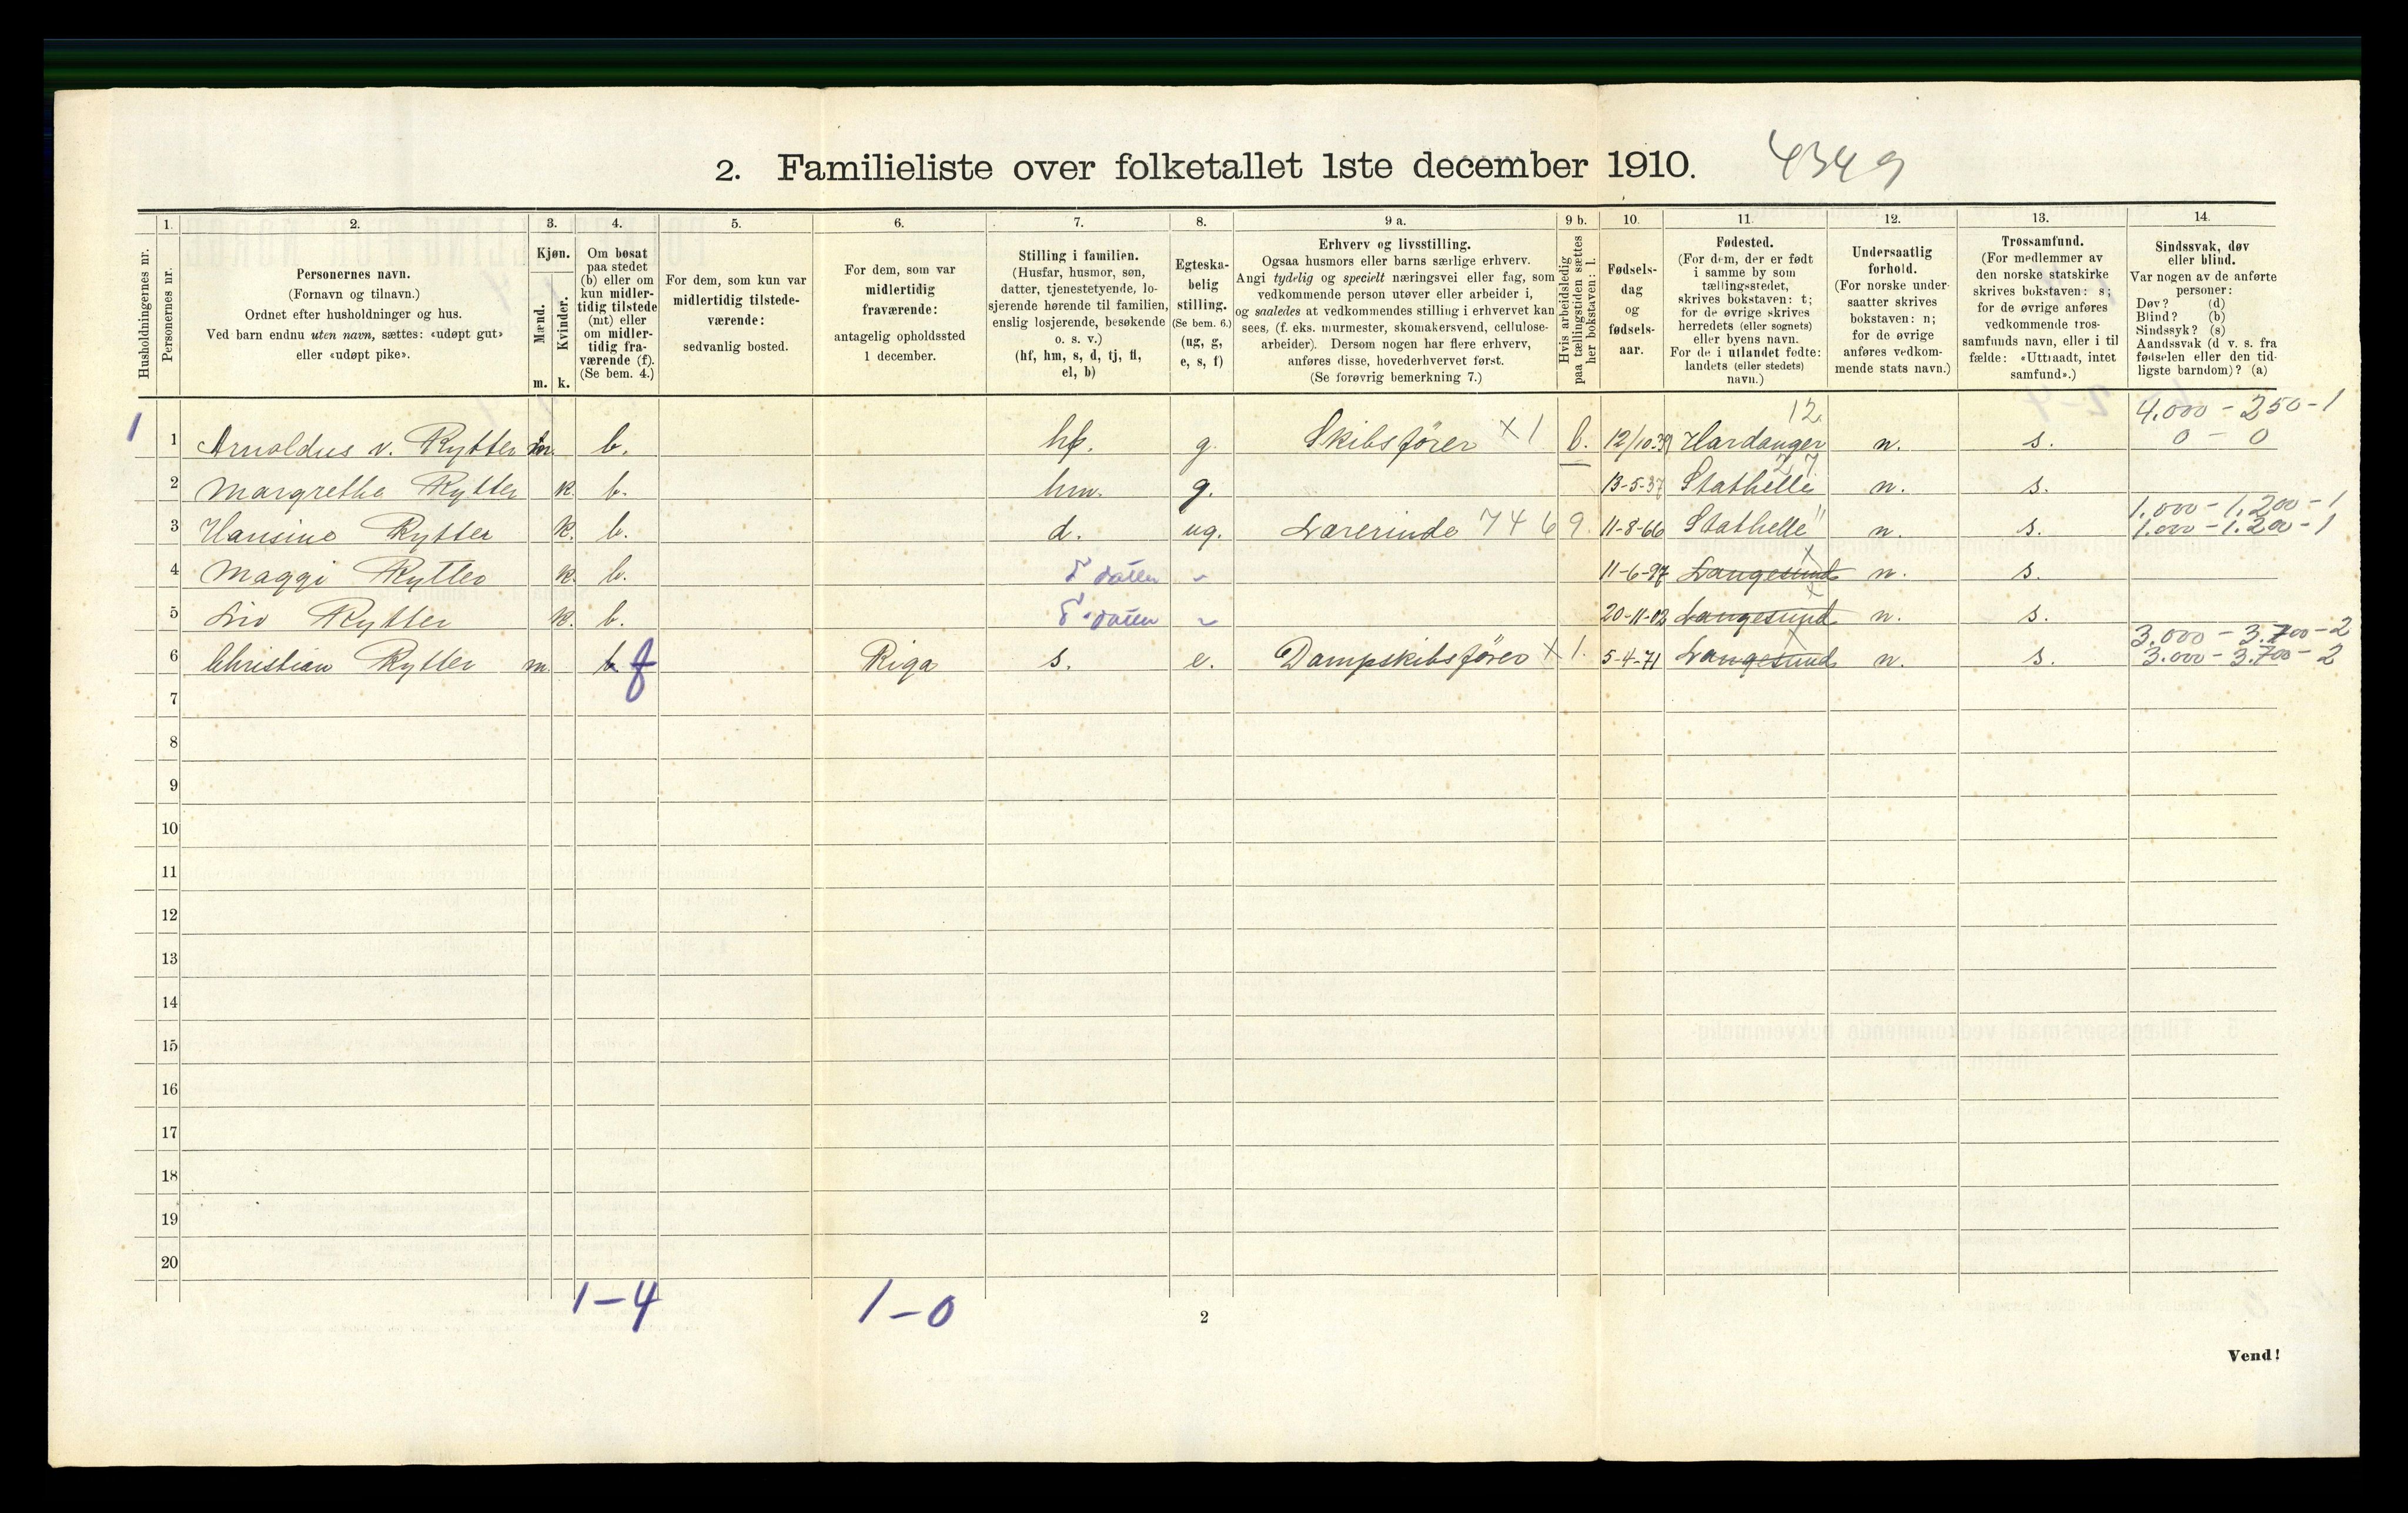 2. Familieliste over folketallet 1ste december 1910. 4349
Husholdningernes nr.
1. Personernes nr.
2. Personernes navn.
(Fornavn og tilnavn.)
Ordnet efter husholdninger og hus.
Ved barn endnu uten navn, sættes: «udøpt gut»
eller «udøpt pike».
3. Kjøn.
Mænd. m.
Kvinder. k.
4. Om bosat
paa stedet
(b) eller om
kun midler-
tidig tilstede
(mt) eller
om midler-
tidig fra-
værende (f).
(Se bem. 4.)
5. For dem, som kun var
midlertidig tilstede-
værende:
sedvanlig bosted.
6. For dem, som var
midlertidig
fraværende:
antagelig opholdssted
1 december.
7. Stilling i familien.
(Husfar, husmor, søn,
datter, tjenestetyende, lo-
sjerende hørende til familien,
enslig losjerende, besøkende
o. s. v.)
(hf, hm, s, d, tj, fl,
el, b)
8. Egteska-
belig
stilling.
(Se bem. 6.)
(ug, g,
e, s, f)
9 a. Erhverv og livsstilling.
Ogsaa husmors eller barns særlige erhverv.
Angi tydelig og specielt næringsvei eller fag, som
vedkommende person utøver eller arbeider i,
og saaledes at vedkommendes stilling i erhvervet kan
sees, (f. eks. murmester, skomakersvend, cellulose-
arbeider). Dersom nogen har flere erhverv,
anføres disse, hovederhvervet først.
(Se forøvrig bemerkning 7.)
9 b. Hvis arbeidsledig
paa tællingstiden sættes
her bokstaven: l.
10. Fødsels-
dag
og
fødsels-
aar.
11. Fødested.
(For dem, der er født
i samme by som
tællingsstedet,
skrives bokstaven: t;
for de øvrige skrives
herredets (eller sognets)
eller byens navn.
For de i utlandet fødte:
landets (eller stedets)
navn.)
12. Undersaatlig
forhold.
(For norske under-
saatter skrives
bokstaven: n;
for de øvrige
anføres vedkom-
mende stats navn.)
13. Trossamfund.
(For medlemmer av
den norske statskirke
skrives bokstaven: s;
for de øvrige anføres
vedkommende tros-
samfunds navn, eller i til
fælde: «Uttraadt, intet
samfund».)
14. Sindssvak, døv
eller blind.
Var nogen av de anførte
personer:
Døv? (d)
Blind? (b)
Sindssyk? (s)
Aandssvak (d v. s. fra
fødselen eller den tid-
ligste barndom)? (a)
12 4.000 - 250 - 1
1 1 Arnoldus v. Rytter m. b. hf. g. Skibsfører X 1 l. 12/10-39 Hardanger n. s. 0 - 0
27
2 Margrethe Rytter k. b. hm. g. 13-5-37 Stathelle n. s.
1.000 - 1.200 - 1
3 Hansine Rytter k. b. d. ug. Lærerinde 7469 11-8-66 Stathelle " n. s. 1.000 - 1.200 - 1
4 Maggi Rytter k. b. datter 11-6-97 Langesund n. s.
5 Liv Rytter k. b. datter 20-11-02 Langesund n. s.
3.000 - 3.700 - 2
6 Christian Rytter m. b. f Riga s. e. Dampskibsfører X 1. 5-4-71 Langesund n. s. 3.000 - 3.700 - 2
7
8
9
10
11
12
13
14
15
16
17
18
19
20
1-4 1-0
2
Vend!